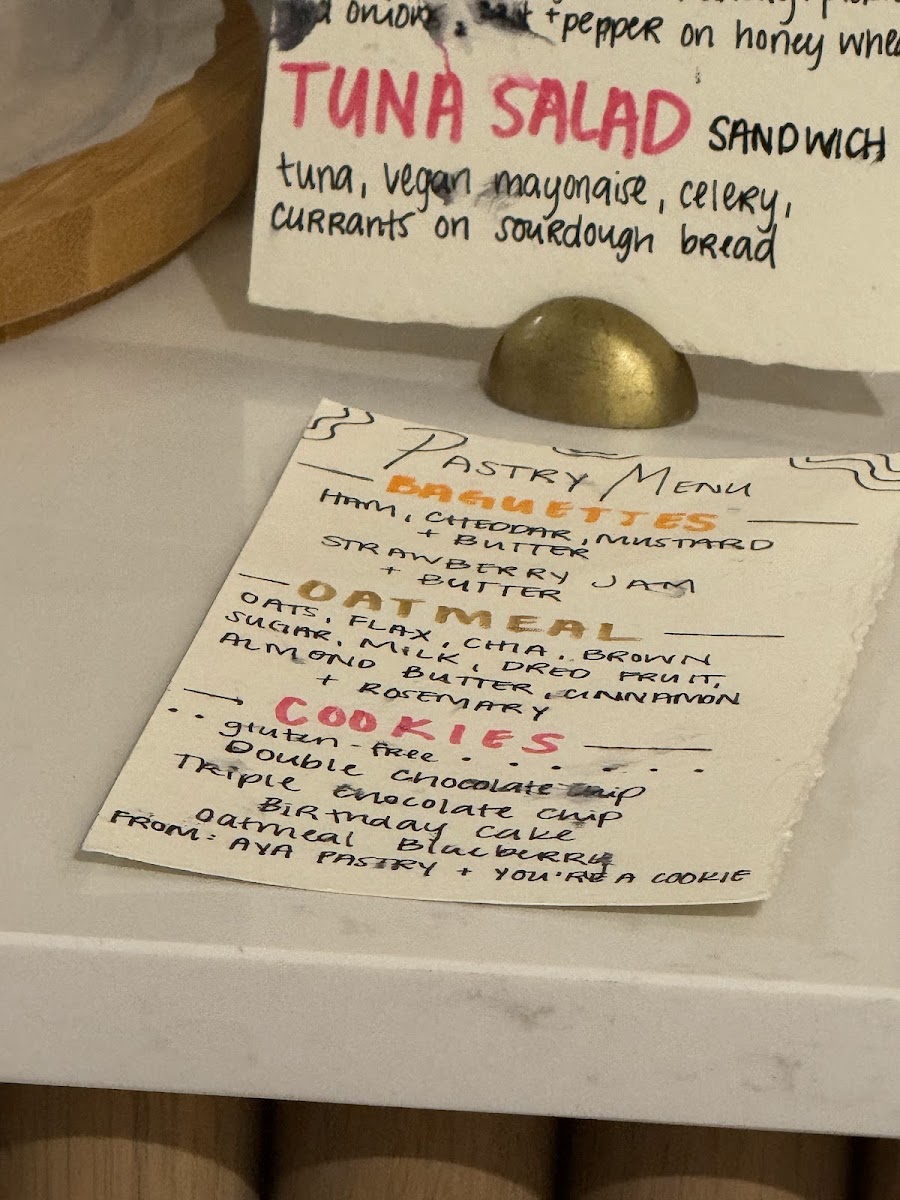 onions, salt + pepper on honey
TUNA SALAD SANDWICH
tuna, vegan mayonaise, celery,
currants on sourdough bread
PASTRY MENU
BAGUETTES
HAM, CHEDDAR, MUSTARD
+ BUTTER
STRAWBERRY JAM
+ BUTTER
OATMEAL
OATS, FLAX, CHIA, BROWN
SUGAR, MILK, DRED FRUIT,
ALMOND BUTTER, CINNAMON
+ ROSEMARY
COOKIES
gluten-free
Double chocolate chip
Triple chocolate chip
Birthday cake
Oatmeal Blueberry
FROM: AYA PASTRY + YOU'RE A COOKIE